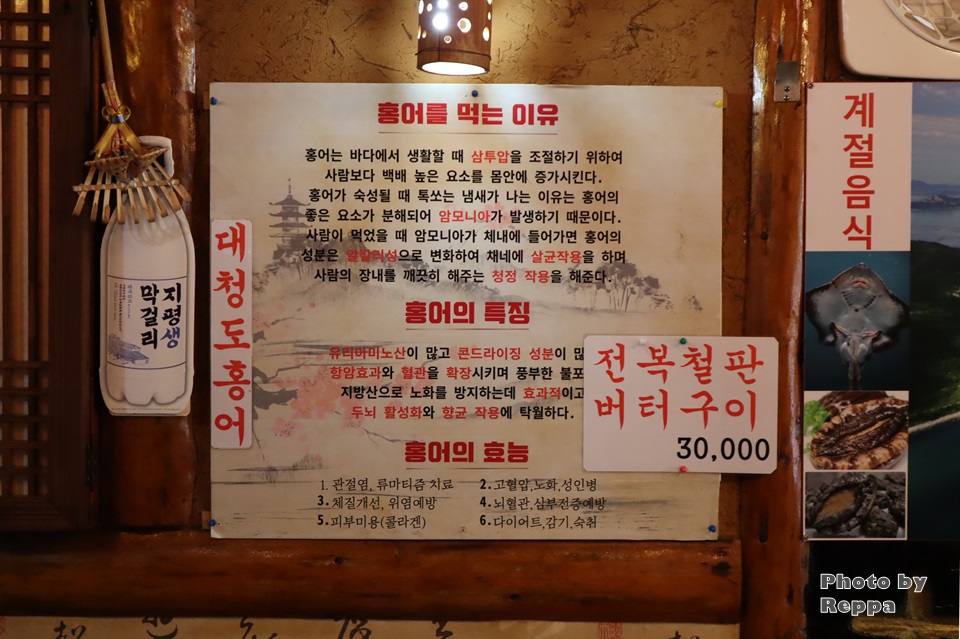 홍어를 먹는 이유
홍어는 바다에서 생활할 때 삼투압을 조절하기 위하여
사람보다 백배 높은 요소를 몸안에 증가시킨다.
홍어가 숙성될 때 톡쏘는 냄새가 나는 이유는 홍어의
좋은 요소가 분해되어 암모니아가 발생하기 때문이다.
사람이 먹었을 때 암모니아가 체내에 들어가면 홍어의
성분은 알칼리성으로 변화하여 채네에 살균작용을 하며
사람의 장내를 깨끗히 해주는 청정 작용을 해준다.
홍어의 특징
유리아미노산이 많고 콘드라이징 성분이 많
항암효과와 혈관을 확장시키며 풍부한 불포
지방산으로 노화를 방지하는데 효과적이고
두뇌 활성화와 향균 작용에 탁월하다.
홍어의 효능
1. 관절염, 류마티즘 치료
2. 고혈압,노화,성인병
3. 체질개선, 위염예방
4. 뇌혈관,삼부전증예방
5. 피부미용(콜라겐)
6. 다이어트,감기,숙취
대청도홍어
전복철판
버터구이
30,000
계절음식
지평생
막걸리
Photo by
Reppa